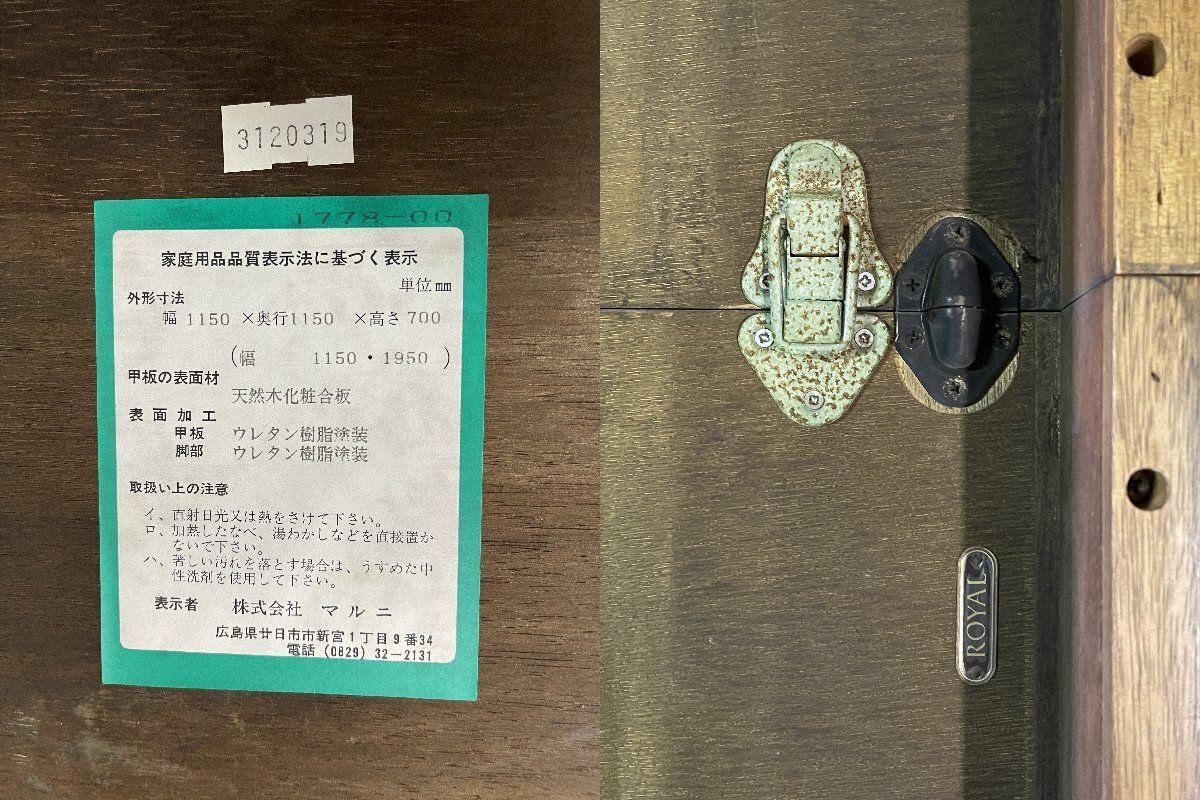 3120319
1778-00
家庭用品品質表示法に基づく表示
単位mm
外形寸法
幅 1150 ×奥行1150 ×高さ 700
(幅 1150・1950 )
甲板の表面材
天然木化粧合板
表面加工
甲板 ウレタン樹脂塗装
脚部 ウレタン樹脂塗装
取扱い上の注意
イ、直射日光又は熱をさけて下さい。
ロ、加熱したなべ、湯わかしなどを直接置か
ないで下さい。
ハ、著しい汚れを落とす場合は、うすめた中
性洗剤を使用して下さい。
表示者 株式会社 マルニ
広島県廿日市市新宮1丁目9番34
電話 (0829) 32-2131
ROYAL